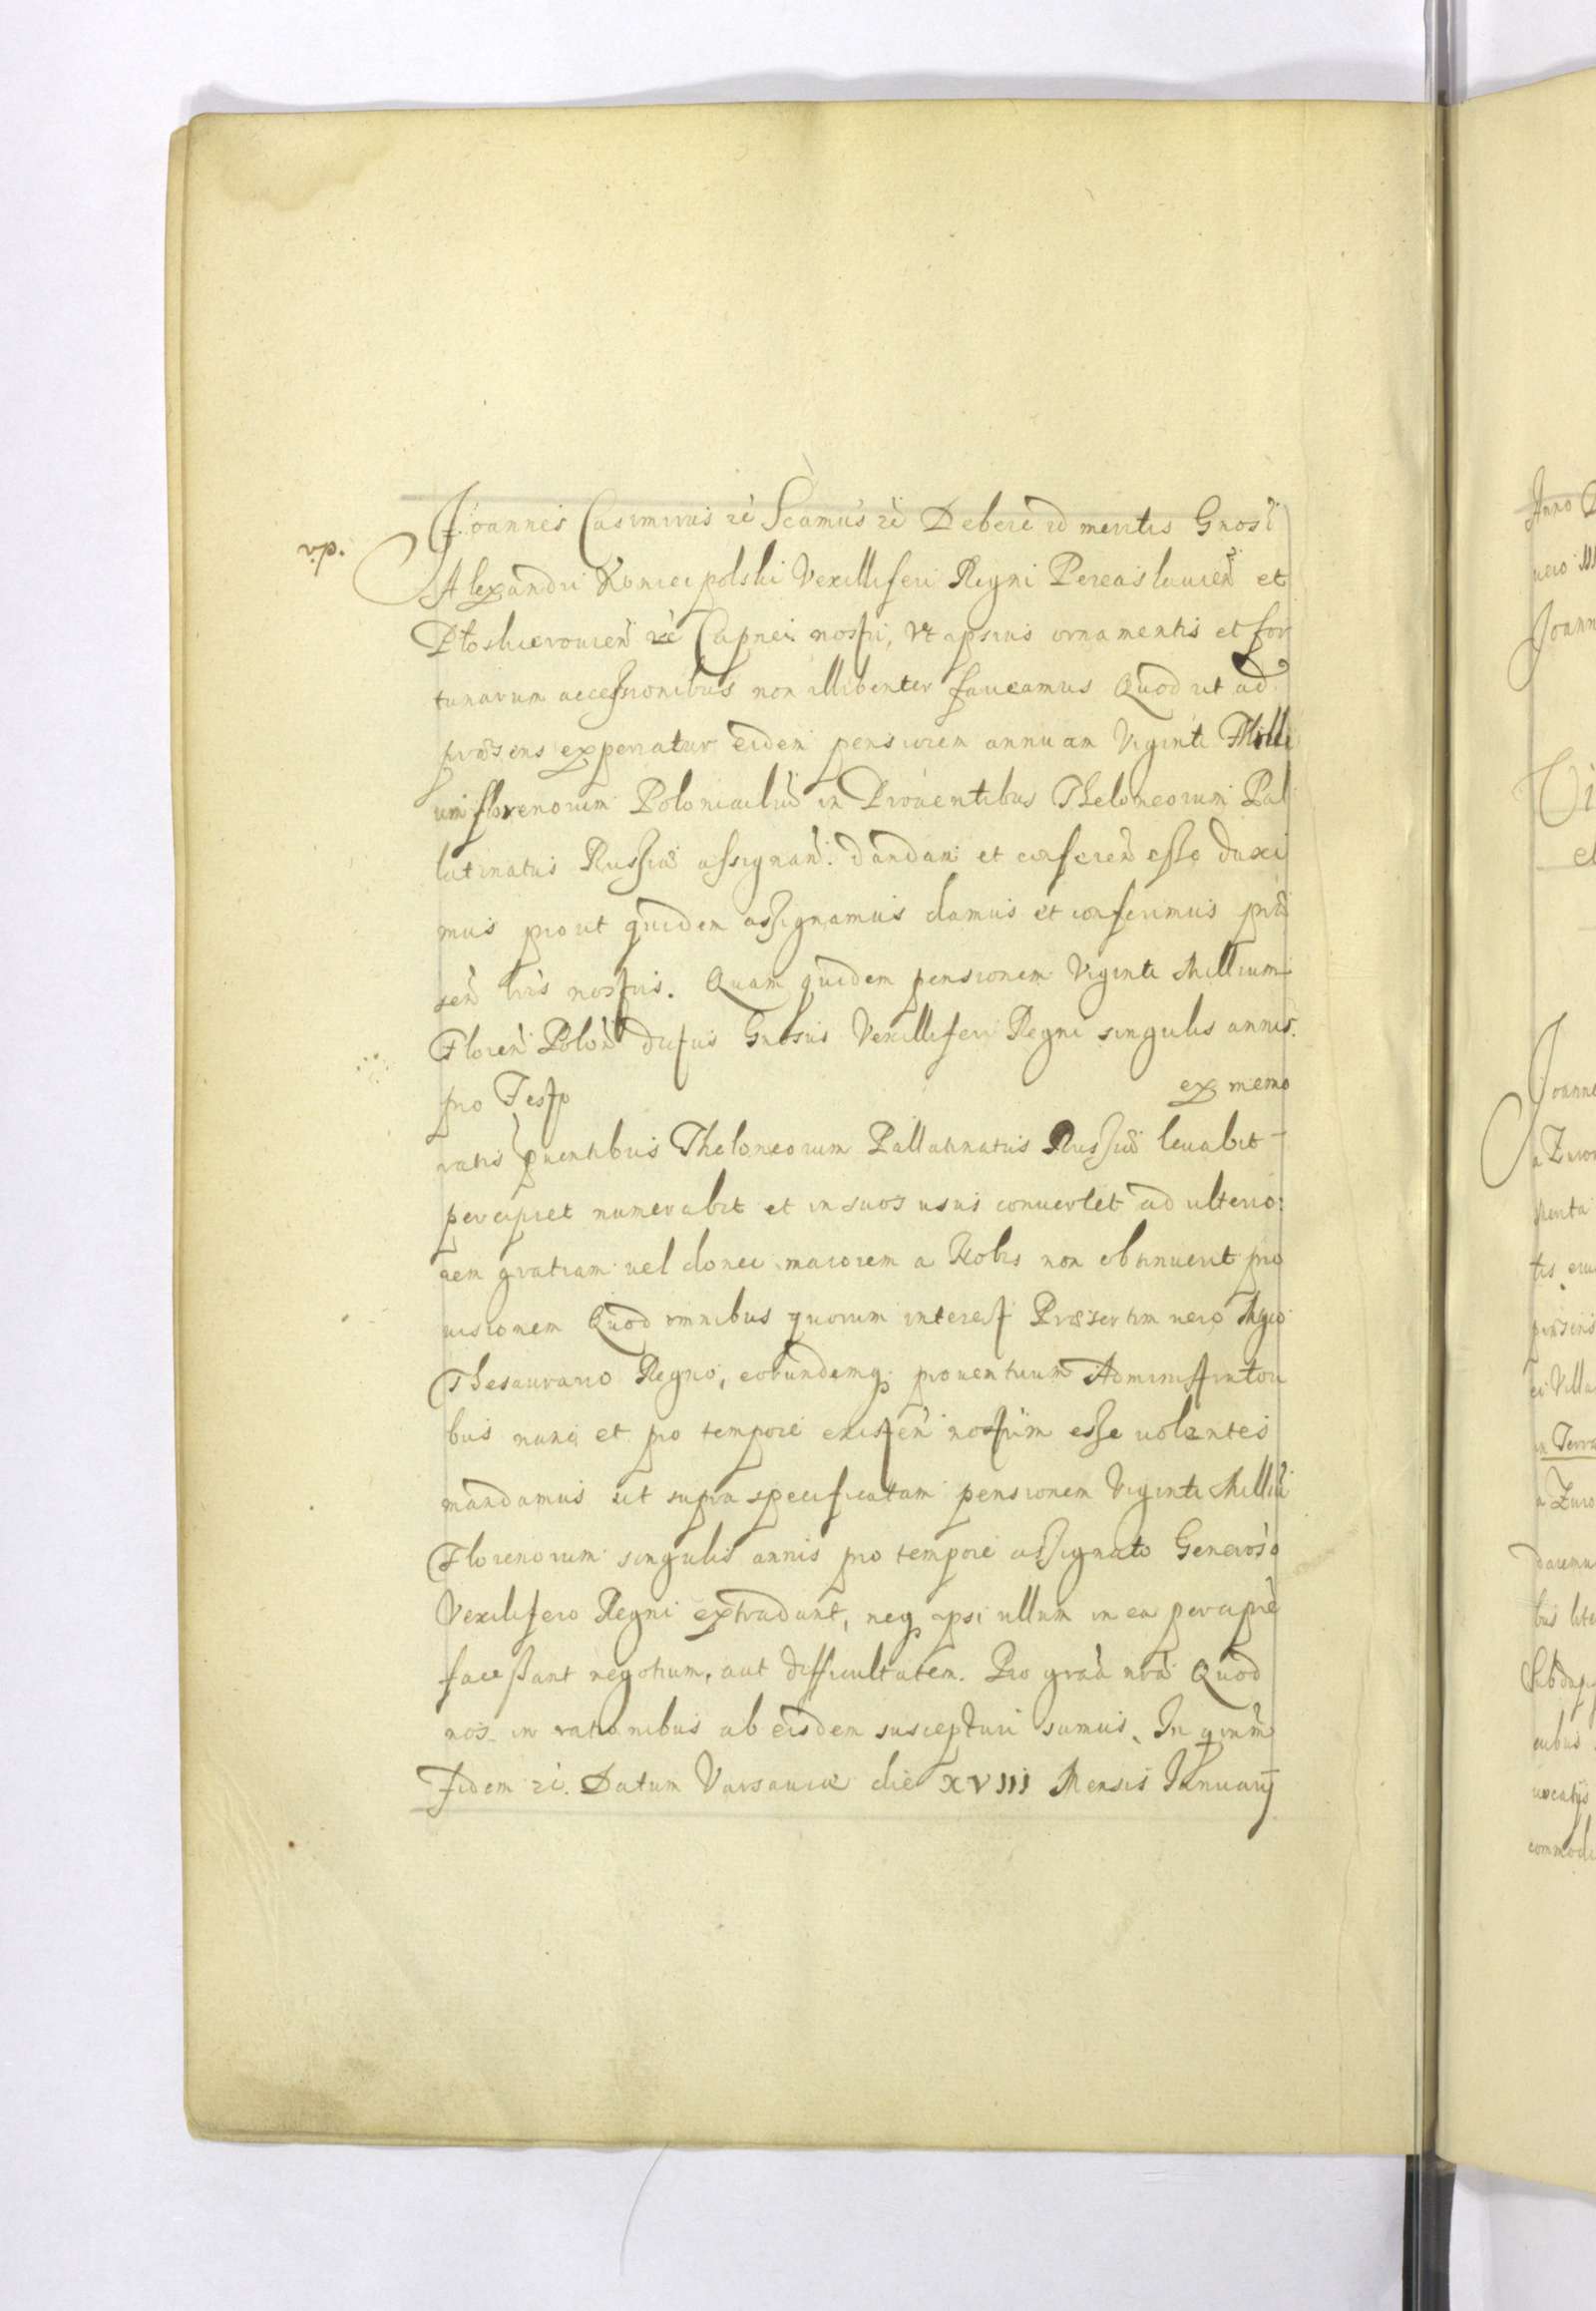 Joannes Casimirus ꝛc̀ Scamus ꝛc̀ Debere id meritis Gnosi
Alexandri Koniecpolski Vexilliferi Regni Pereaslauien̄ et
Płoskierouien̄ ꝛc̀ Capnei nostri, Vt ipsius ornamentis et for
tunarum accessionibus non illibenter faueamus Quod ut ad
præsens experiatur eidem pensionem annuam Viginti Milli
um florenorum Polonicaliū in Prouentibus Theloneorum Pal
latinatus Russiæ assignan̄. dandam et conferen̄ esse duxi
mus prout quidem assignamus damus et conferimus præ
sen̄ lris nostris. Quam quidem pensionem Viginti Millium
Floren̄ Polon̄ dictus Gnosus Vexillifer Regni singulis annis
pro Festo ex memo
ratis puentibus Theloneorum Pallatinatus Russiæ leuabit
percipiet numerabit et in suos usus conuertet ad ulterio:
rem gratiam uel donec maiorem a Nobis non obtinuerit pro
uisionem Quod omnibus quorum interest Præsertim uero Mgco
Thesaurario Regni, eorundemq; prouentuum Administratori
bus nunc et pro tempore existen̄ nostrim esse uolentes
mandamus ut supra specificatam pensionem Viginti Milliū
Florenorum singulis annis pro tempore assignato Generoso
Vexilifero Regni extradant, neq ipsi ullum in ea percipiē
facessant negotium, aut difficultatem. Pro graa nra Quod
nos in rationibus ab eisdem suscepturi sumus. In quorm
fidem ꝛc̀. Datum Varsauiæ die XVIII Mensis Januarij